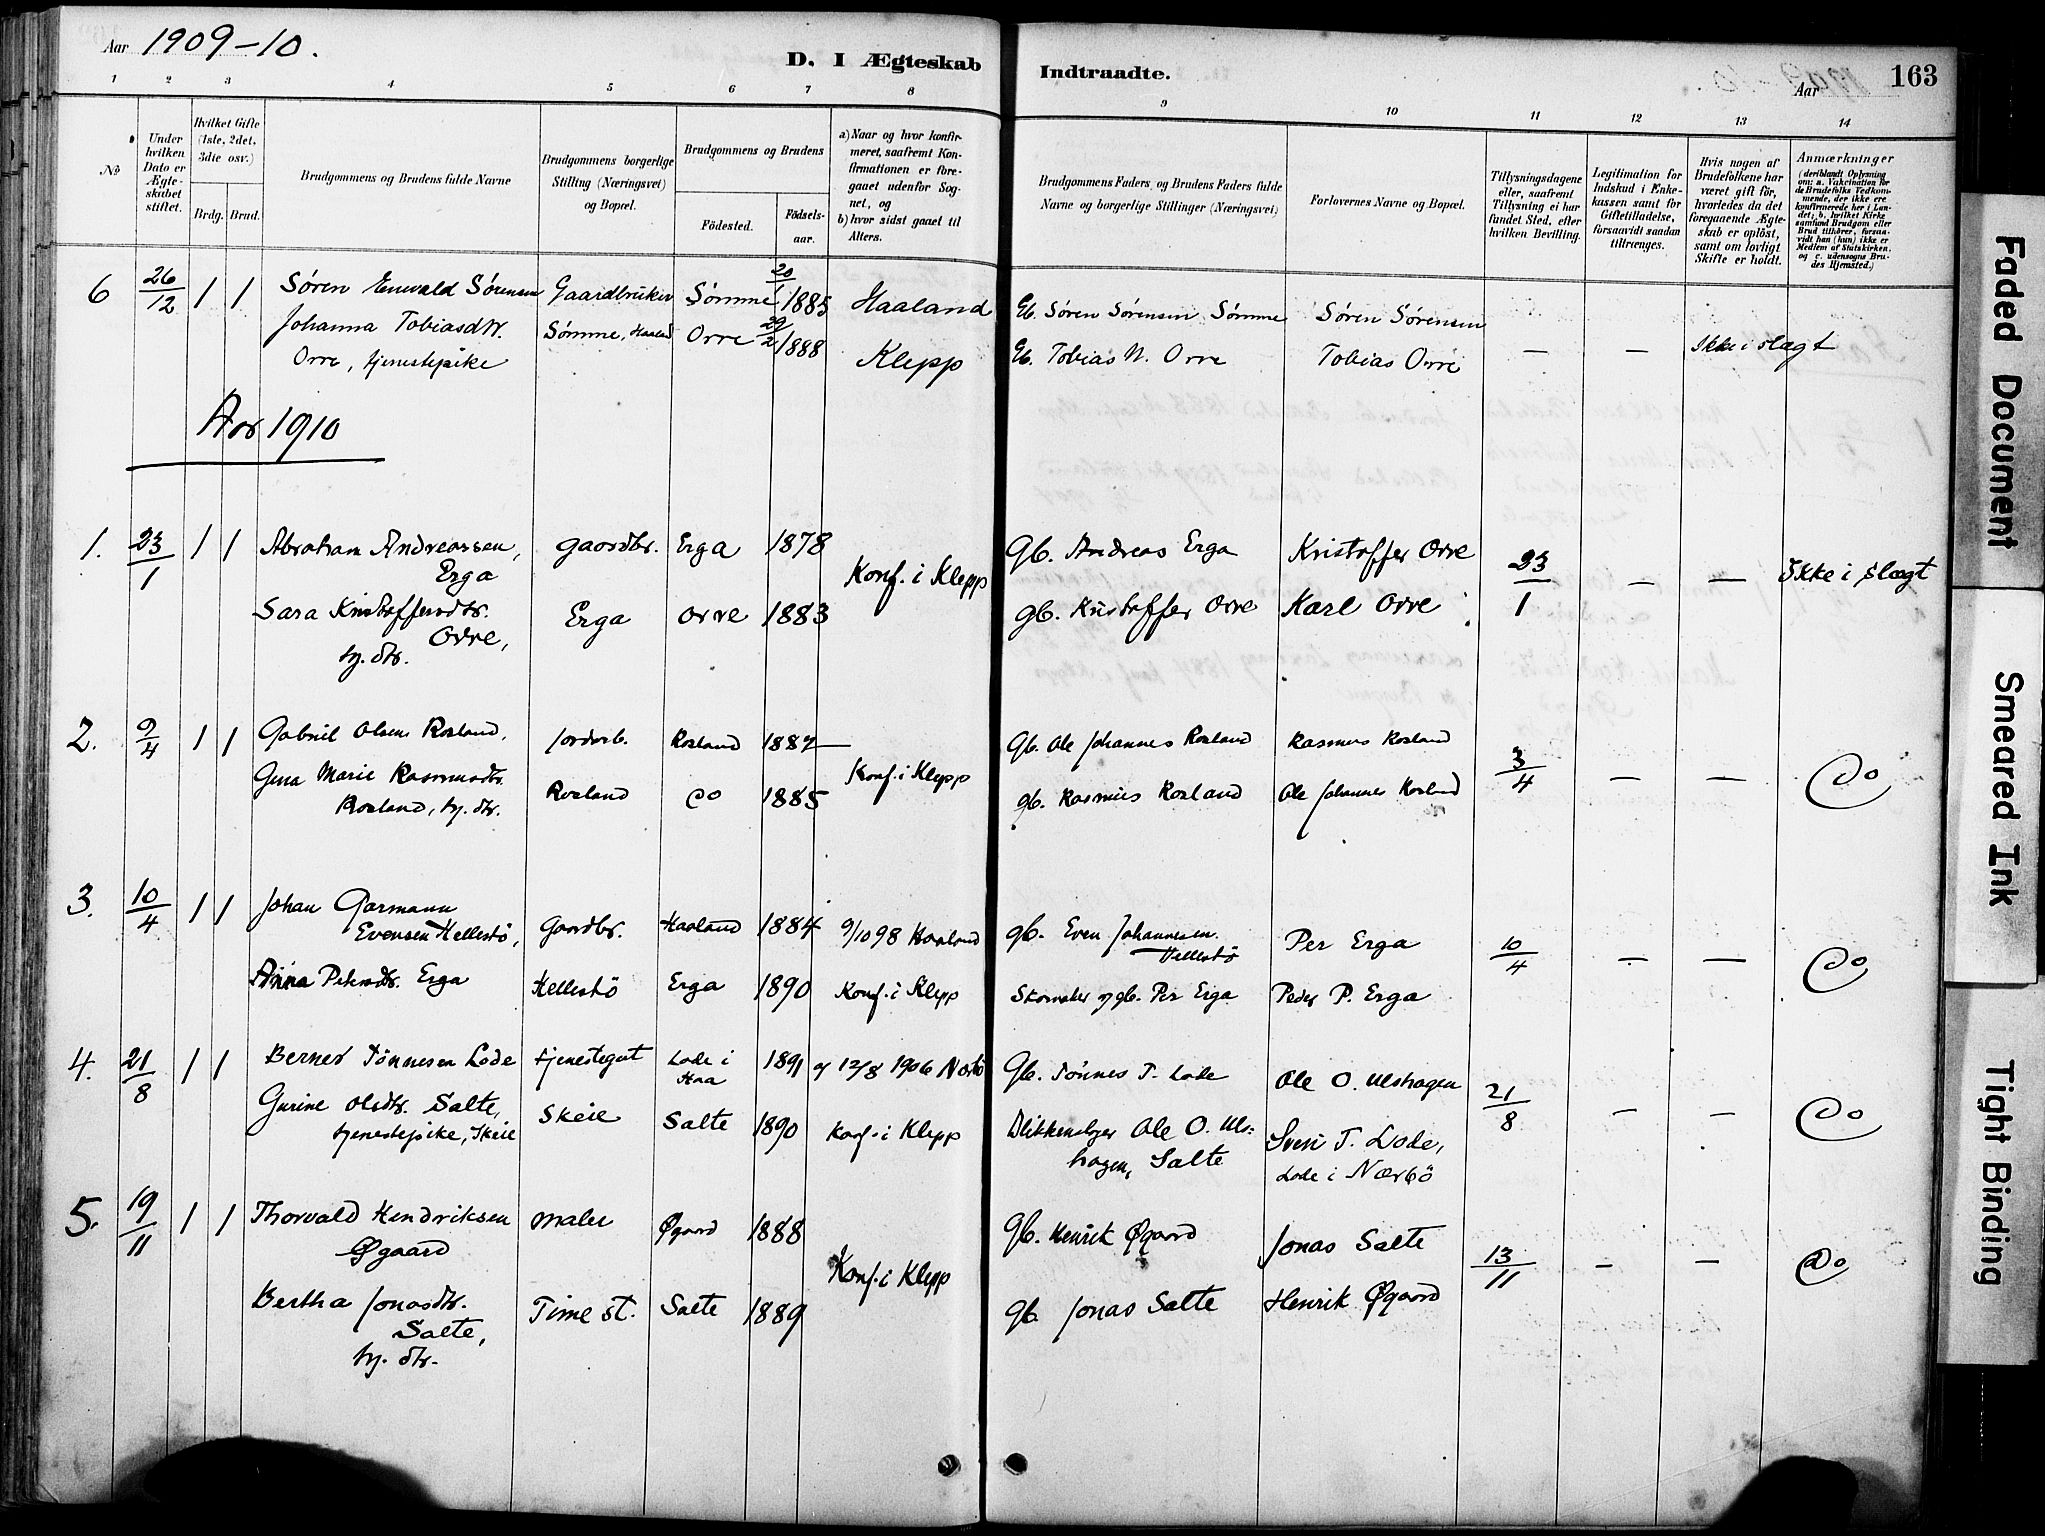 Aar 1909-10.
D. I Ægteskab
Indtraadte.
Aar
163
1 2 3 4 5 6 7 8
9 10 11 12 13 14
No
Under hvilken Dato er Ægteskabet stiftet.
Hvilket Gifte (1ste, 2det, 3die osv.)
Brdg. Brud.
Brudgommens og Brudens fulde Navne
Brudgommens borgerlige Stilling (Næringsvei) og Bopæl.
Brudgommens og Brudens
Födested.
Födsels-aar.
a) Naar og hvor konfirmeret, saafremt Konfirmationen er foregaaet udenfor Sognet, og
b) hvor sidst gaaet til Alters.
Brudgommens Faders, og Brudens Faders fulde Navne og borgerlige Stillinger (Næringsvei)
Forlovernes Navne og Bopæl.
Tillysningsdagene eller, saafremt Tillysning ei har fundet Sted, efter hvilken Bevilling.
Legitimation for Indskud i Enkekassen samt for Giftetilladelse, forsaavidt saadan tiltrænges.
Hvis nogen af Brudefolkene har været gift för, hvorledes da det foregaaende Ægteskab er oplöst, samt om lovligt Skifte er holdt.
Anmærkninger (deriblandt Oplysning om: a. Vakcination for de Brudefolks Vedkommende, der ikke ere konfirmerede her i Landet; b. hvilket Kirkesamfund Brudgom eller Brud tilhörer, forsaavidt han (hun) ikke er Medlem af Statskirken. og c. udensogns Brudes Hjemsted.)
6 26/12 1 1 Søren Enevald Sørensen Gaardbruker Sømme 20/1 1885 Haaland Gb. Søren Sørensen Sømme Søren Sørensen
Johanna Tobiasdtr. Sømme, Haaland Orre 29/2 1888 — — Ikke i slægt
Orre, tjenestepike Klepp Gb. Tobias N. Orre Tobias Orre
Aar 1910
1. 23/1 1 1 Abraham Andreassen, Gaardbr. Erga 1878 Gb. Andreas Erga Kristoffer Orre 23/1 — — Ikke i slægt
Erga Konf. i Klepp
Sara Kristoffersdtr. Erga Orre 1883 gb. Kristoffer Orre Karl Orre
Orre,
hj. dtr.
2. 9/4 1 1 Gabriel Olsen Rosland, Jordarb. Rosland 1887 Gb. Ole Johannes Rosland Rasmus Rosland 3/4 — — Do
Gina Marie Rasmusdtr. Konf. i Klepp
Rosland, hj. dtr. Rosland Do 1885 gb. Rasmus Rosland Ole Johannes Rosland
3. 10/4 1 1 Johan Garmann
Evensen Hellestö, Gaardbr. Haaland 1884 9/10 98 Haaland gb. Even Johannesen Hellestö Per Erga 10/4 — — Do
Anna Petersdtr. Erga Hellestö Erga 1890 Konf. i Klepp Skomaker og gb. Per Erga Peder P. Erga
4. 21/8 1 1 Berner Tönnesen Lode tjenestegut Lode i Haa 1891 12/8 1906 Nærbö Gb. Tönnes T. Lode Ole O. Ulshagen 21/8 — — Do
Gurine Olsdtr. Salte, Skeie Salte 1890 Konf. i Klepp Blikkenslager Ole O. Uls-
tjenestepike, Skeie hagen, Salte Sven T. Lode,
Lode i Nærbö
5. 19/11 1 1 Thorvald Hendriksen maler Øgaard 1888 Gb. Henrik Øgaard Jonas Salte 13/11 — — Do
Øgaard Konf. i Klepp
Bertha Jonasdtr. Time st. Salte 1889 gb. Jonas Salte Henrik Øgaard
Salte,
hj. dtr.
Faded Document
Smeared Ink
Tight Binding